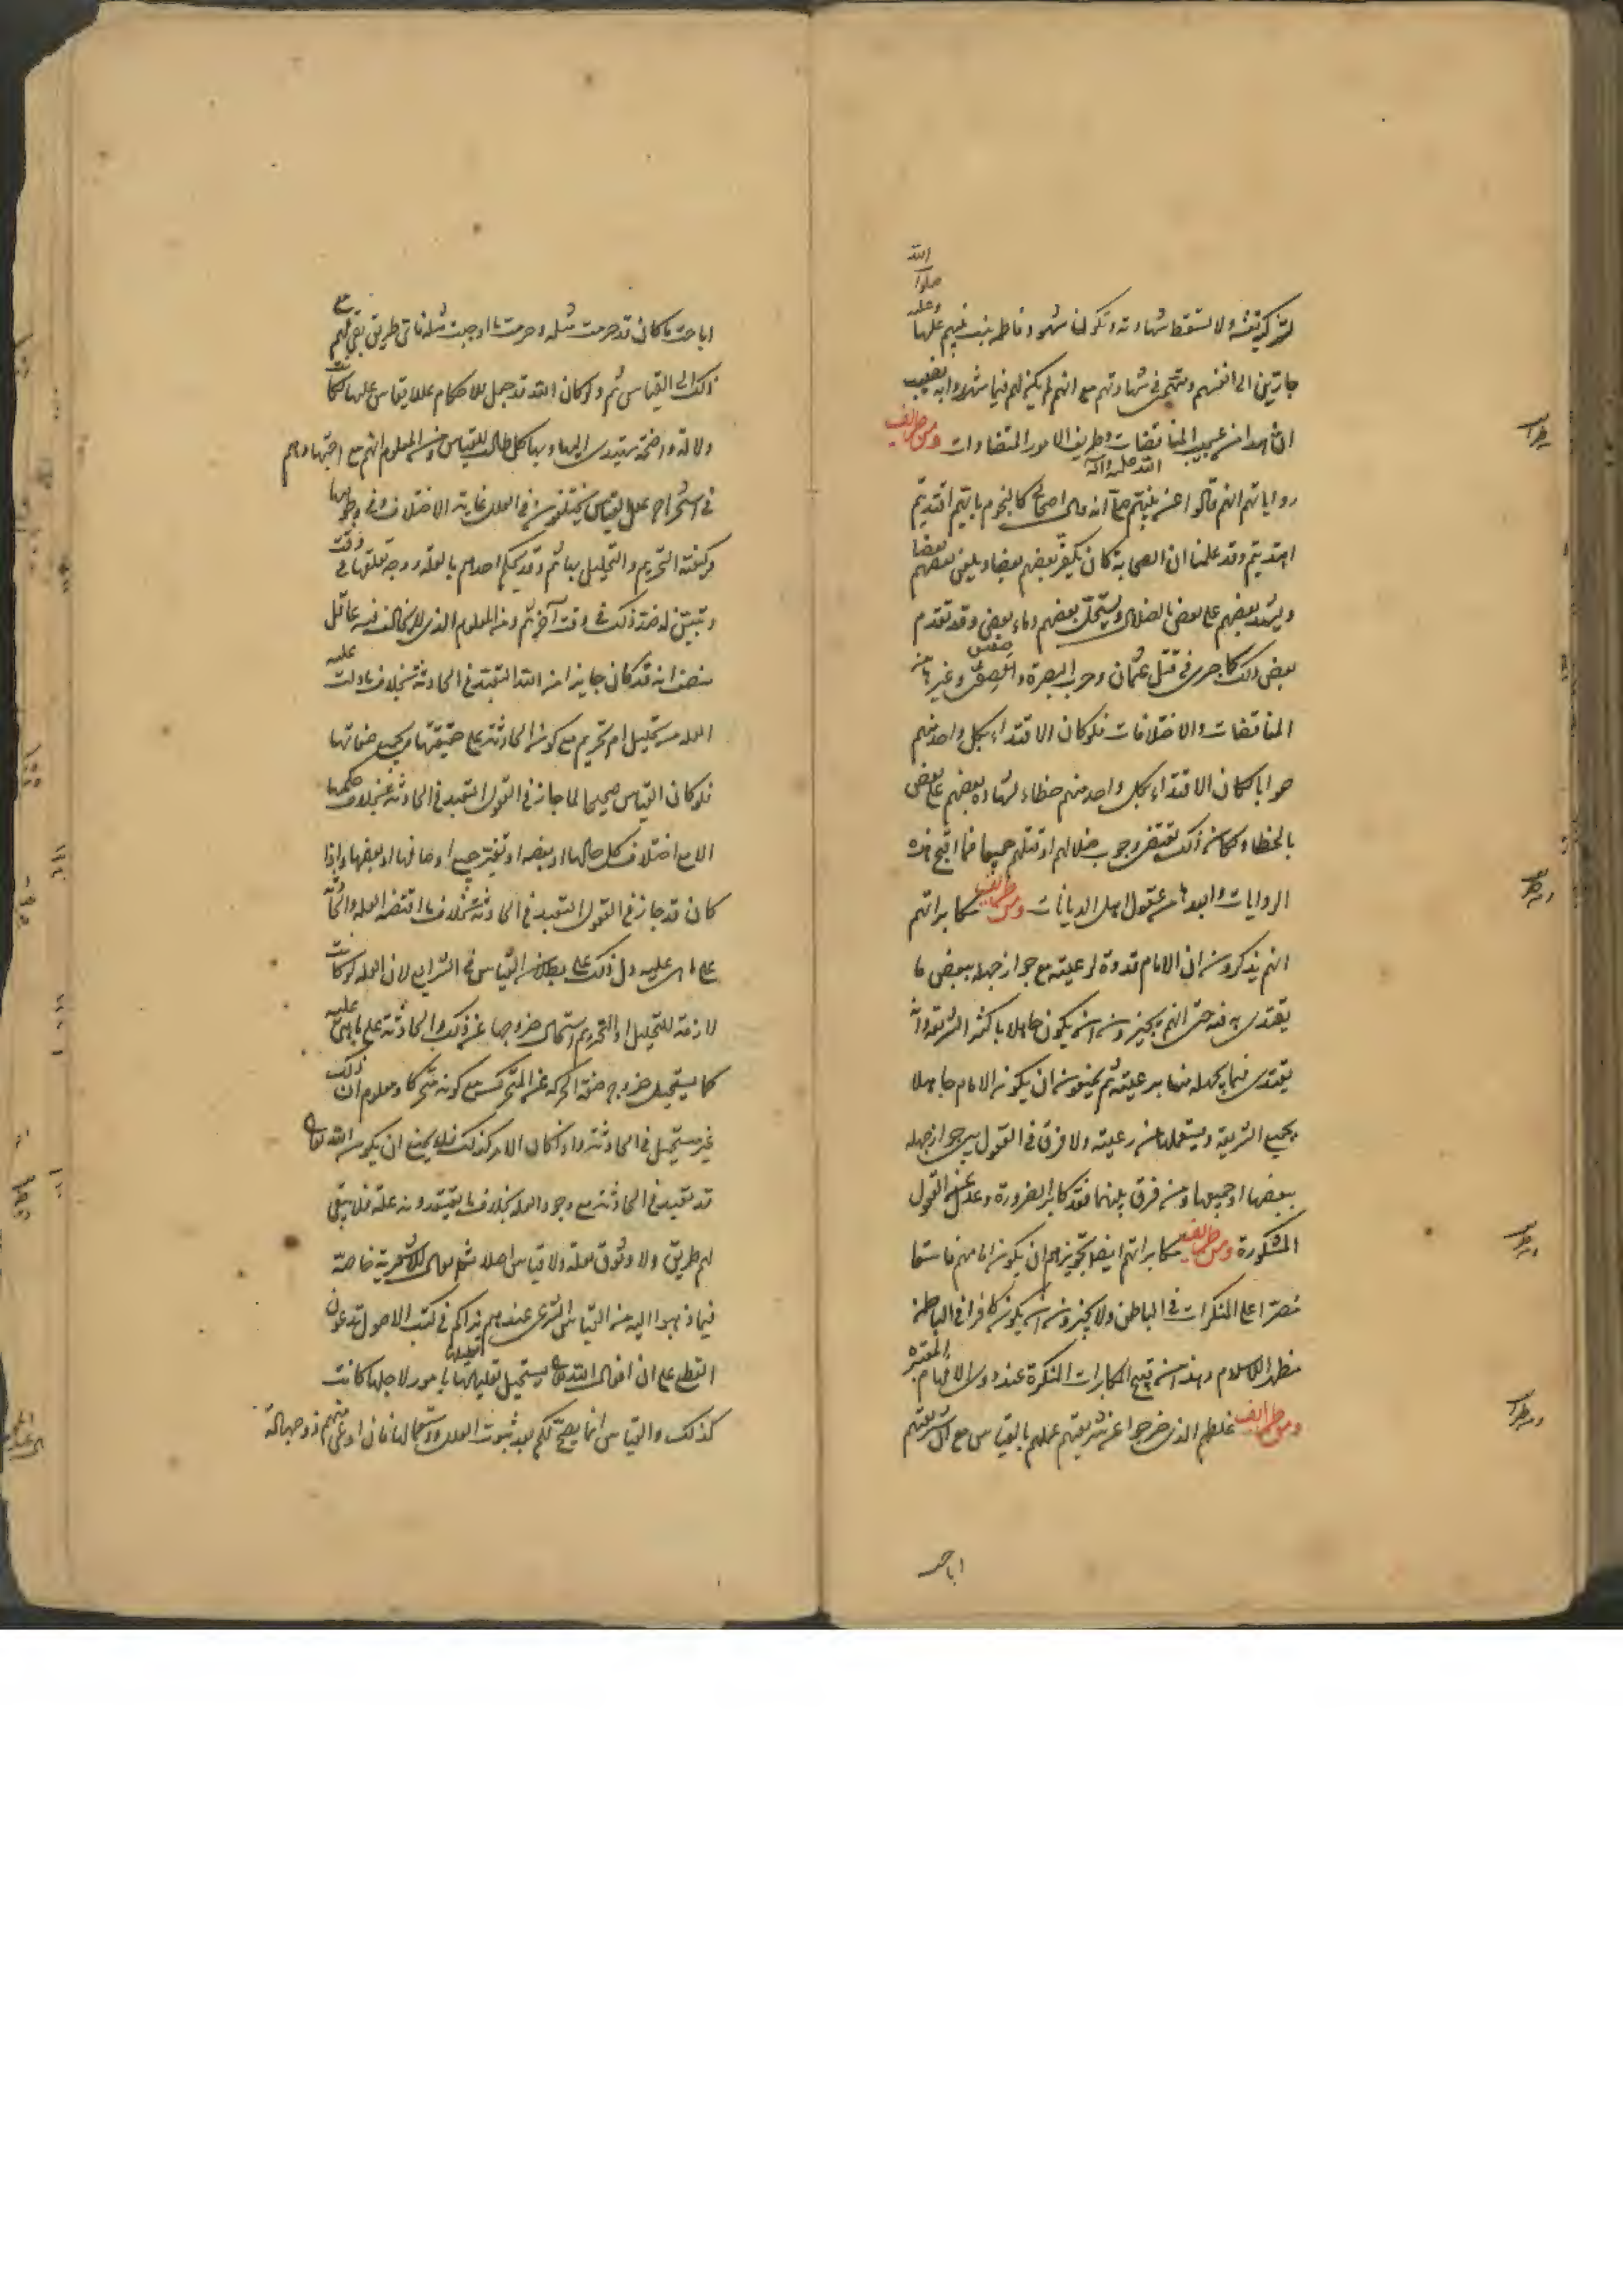 لتزكيتة ولا تسقط شهادته وتكون شهود فاطمه بنت نبيهم عليها وعليه صلوا الله
جارين الى انفسهم ومتهمين في شهادتهم مع انهم لم يكن لهم فيما شهدوا به نصيب
ان هذا من عجيب المناقضات وطريف الامور المتضادات ومن طرايف
رواياتهم انهم قالوا عن نبيهم صلى الله عليه وآله انه قال اصحابي كالنجوم بايهم اقتديتم
اهتديتم وقد علمنا ان الصحابة كان يكفر بعضهم بعضا ويلعن بعضهم بعضا
ويشهد بعضهم على بعض بالضلال ويستحل بعضهم دماء بعض وقد تقدم
بعض ذلك كما جرى في قتل عثمان وحرب البصرة وصفين وغيرها من
المناقضات والاختلافات فلو كان الاقتداء بكل واحد منهم
صوابا لكان الاقتداء بكل واحد منهم خطاء لشهادة بعضهم على بعض
بالخطاء وكان ذلك يقتضي وجوب ضلالهم او قتلهم جميعا فما اقبح هذه
الروايات وابعدها من عقول اهل الديانات ومن طرايف مكابراتهم
انهم يذكرون ان الامام قدوة لرعيته مع جواز جهله ببعض ما
يقتدى به فيه حتى انهم يجيزون ان يكون جاهلا باكثر الشريعة وانه
يقتدى فيما يجهله منها برعيته ثم يمنعون ان يكون الامام جاهلا
بجميع الشريعة ويستعملها من رعيته ولا فرق في القول بين جواز جهله
ببعضها او جميعها ومن فرق بينهما فقد كابر الضرورة وعدل عن القول
المشكورة ومن طرايف مكابراتهم ايضا تجويزهم ان يكون امامهم فاسقا
مصرا على المنكرات في الباطن ولا يجيزون ان يكون كافرا في الباطن
مظهر الاسلام وهذا من قبيح المكابرات المنكرة عند ذوي الافهام المعتبرة
ومن طرايف غلطهم الذي خرجوا عن شريعتهم عملهم بالقياس مع ان شريعتهم
اباحت
اباحت ما كان قد حرمت مثله وحرمت ما اوجبت مثله فاي طريق بقي لهم مع
ذلك الى القياس ثم ولو كان الله قد جعل للاحكام عللا يقاس عليها لكانت
دلالة واضحة يهتدى اليها وبها كل طالب للقياس ومن المعلوم انهم مع اجتهادهم
في استخراج علل القياس يختلفون في العلل غاية الاختلاف وفي وجوهها
وكيفية التحريم والتحليل بها ثم وقد يحكم احدهم بالعلة ووجه تعلقها في وقت
ويتبين له ضد ذلك في وقت آخر ثم ومن المعلوم الذي لا يخالف فيه عاقل
منصف انه قد كان جايزا من الله التعبد في الحادثة بخلاف ما دلت عليه
العله من تحليل ام تحريم مع كون الحادثة على حقيقتها وجميع صفاتها
فلو كان القياس صحيحا لما جاز في العقول التعبد في الحادثة بخلاف حكمها
الا مع اختلاف كل حالها او بعضه او تغير جميع اوصافها او بعضها واذا
كان قد جاز في العقول التعبد في الحادثة بخلاف ما اقتضته العله والحادثة
على ما هى عليه دل ذلك على بطلان القياس في الشرايع لان العله لو كانت
لازمة للتحليل او التحريم استحال خروجها عن ذلك والحادثة على ما هي عليه
كما يستحيل خروج صفة الحركة عن المتحرك مع كونه متحركا ومعلوم ان ذلك
غير مستحيل في الحادثة واذا كان الامر كذلك فلا يمنع ان يكون الله تعالى
قد تعبد في الحادثة مع وجود العله بخلاف ما يعتقدونه علة فلا يبقى
لهم طريق ولا وثوق بعلة ولا قياس اصلا ثم يقال للاشعرية خاصة
فيما ذهبوا اليه من القياس الشرعي عندهم نراكم في كتب الاصول تدعون
القطع على ان افعال الله تعالى يستحيل تعليلها بامور لاجلها كانت
كذلك والقياس انما يصح لكم بعد ثبوت العلل واستعمالها فان ادعى منهم ذو جهالة